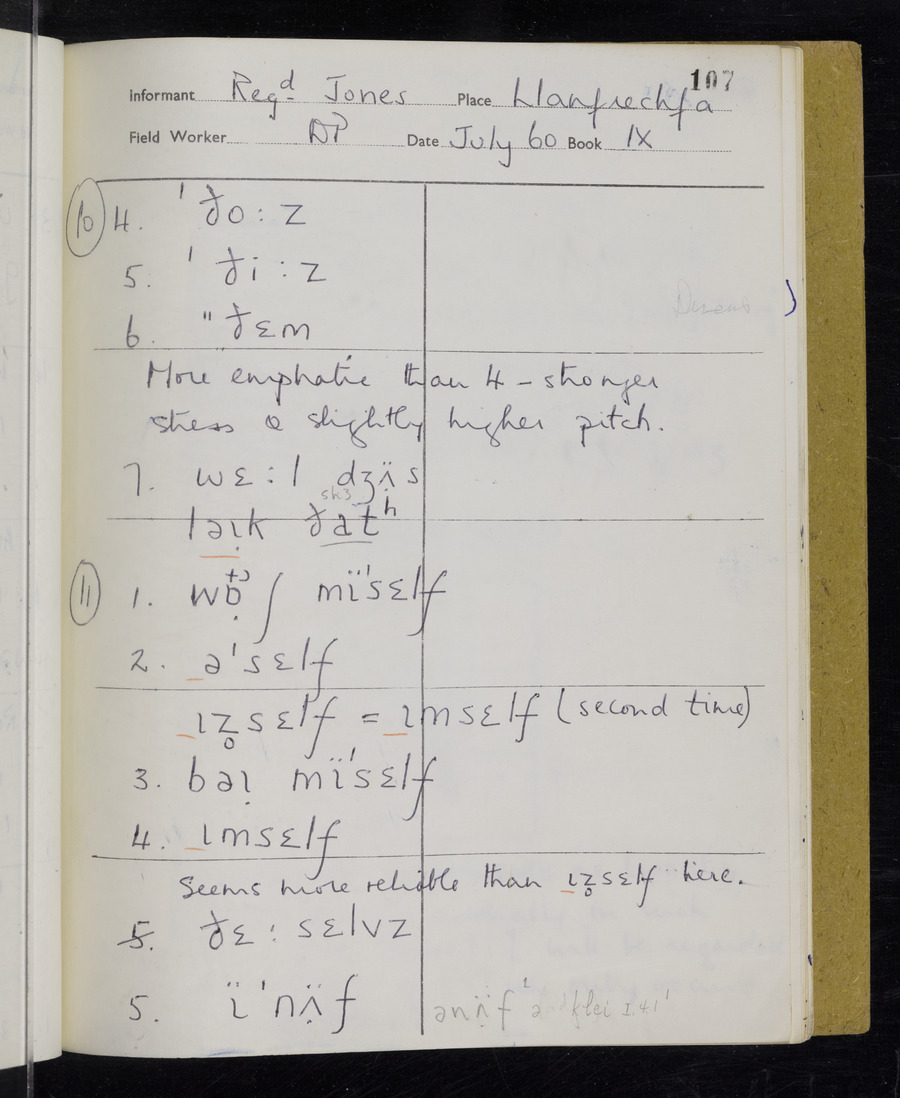 107
Informant Reg^d Jones Place Llanfrechfa
Field Worker DP Date July 60 Book IX
⑩ 4. ˈðoːz
5. ˈðiːz
6. "ðɛm
More emphatic than 4 – stronger
stress & slightly higher pitch.
7. wɛːl dʒʌ̣̈s
ləɪ̣k ðatʰ
⑪ 1. wɒ̣ʃ mɪ̈ˈsɛlf
2. əˈsɛlf
ɪz̥sɛlf = ɪmsɛlf (second time)
3. bəɪ̣ mɪ̈ˈsɛlf
4. ɪmsɛlf
Seems more reliable than ɪz̥sɛlf here.
5. ðɛːsɛlvz
5. ɪ̈ˈnʌ̣̈f